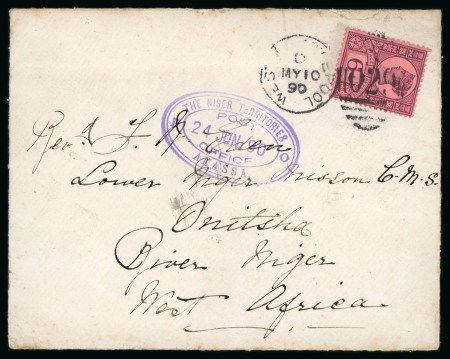 WEST LIVERPOOL
MY 10
90
1020
THE NIGER TERRITORIES
POST
24 JUN. 90
OFFICE
AKASSA
Revd
Lower Niger Mission C.M.S.
Onitsha
River Niger
West Africa